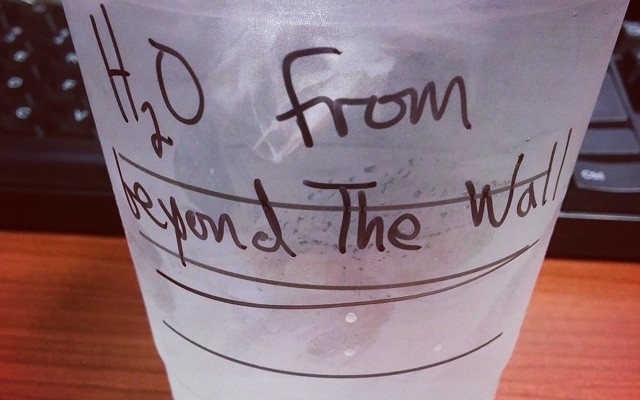 H2O From
beyond The Wall
Ctrl